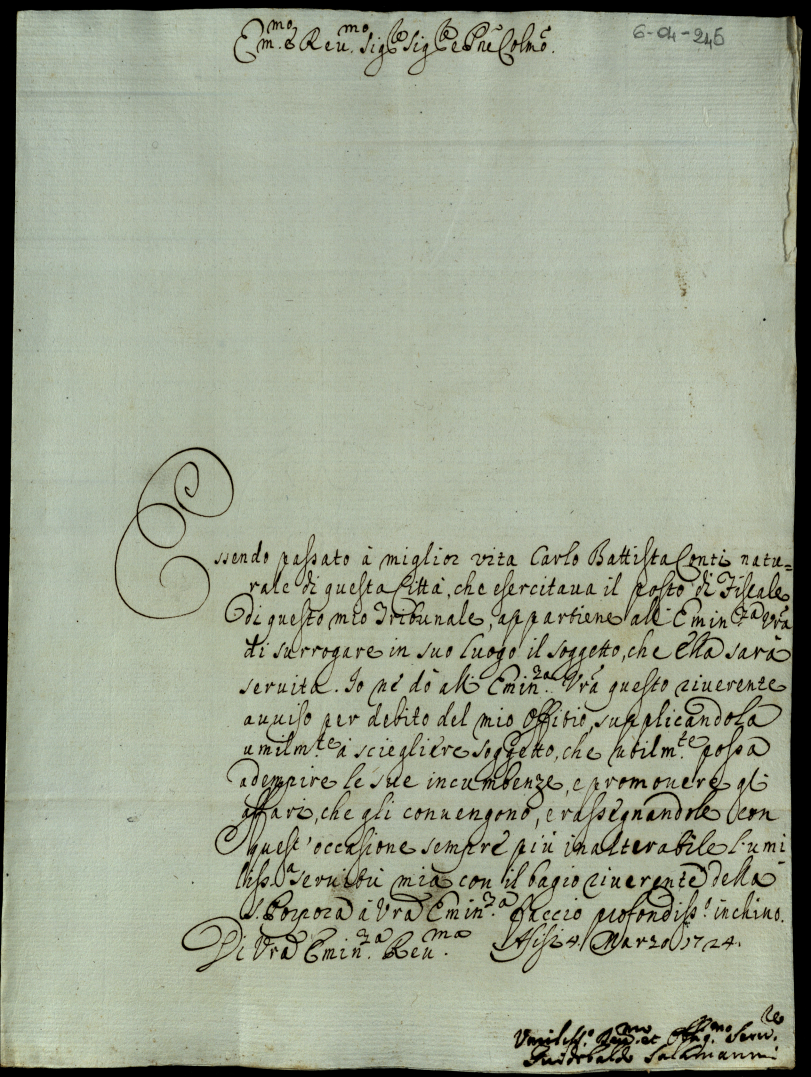 Em.mo e Reu.mo Sig.re Sig.re e Pne Colmo.
6-04-245
Essendo passato à miglior vita Carlo Battista Conti natu=
rale di questa Città, che esercitaua il posto di Fiscale
di questo mio Tribunale, appartiene all' Emin.za Vrã
di surrogare in suo luogo il soggetto, che Ella sarà
seruita. Io nè dò all' Emin.za Vrã questo riuerente
auuiso per debito del mio Offitio, supplicandola
umilm.te à sciegliere soggetto, che utilm.te possa
adempire le sue incumbenze, e promouere gl'
affari, che gli conuengono, e rassegnandole con
quest' occasione sempre più inalterabile l'umi
liss.a seruitù mia con il bagio riuerente della
S. Porpora à Vrã Emin.za faccio profondiss.o inchino.
Di Vrã Emin.za Reu.ma Assisi 4 Marzo 1724.
Umiliss.o Deu.mo et Obblig.mo Seru.re